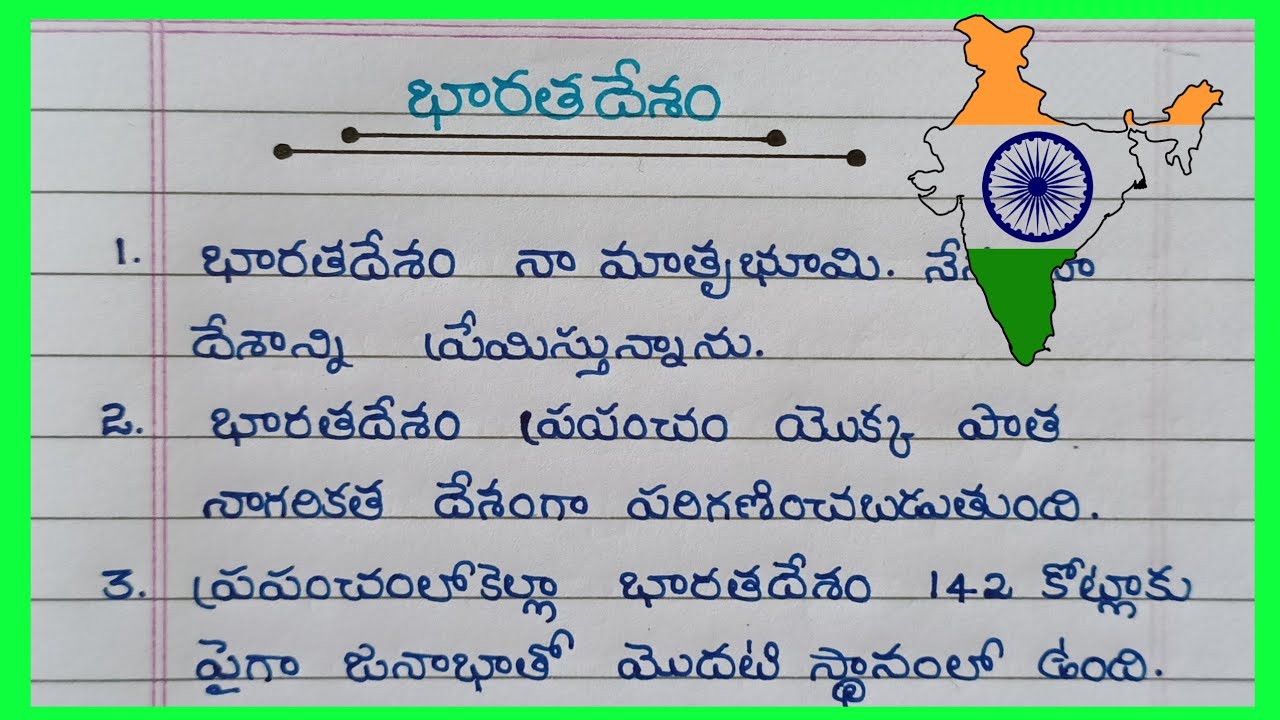 భారతదేశం
1. భారతదేశం నా మాతృభూమి.
దేశాన్ని ప్రేయిస్తున్నాను.
2. భారతదేశం ప్రపంచం యొక్క పాత
నాగరికత దేశంగా పరిగణించబడుతుంది.
3. ప్రపంచంలోకెల్లా భారతదేశం 142 కోట్లూకు
పైగా జనాభాతో మొదటి స్థానంలో ఉంది.